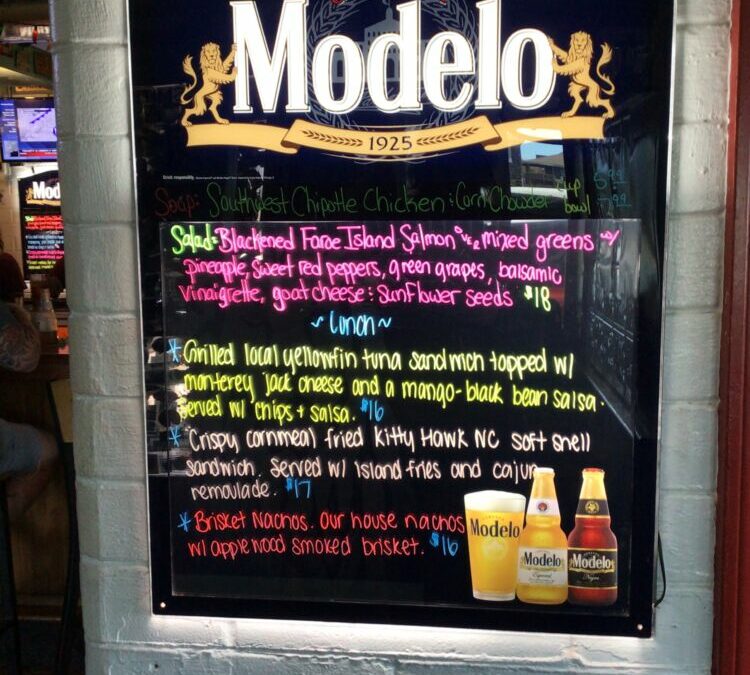 Modelo
1925
Soup: Southwest Chipotle Chicken & Corn Chowder cup
bowl
Salad: Blackened Faroe Island Salmon over mixed greens w/
pineapple, sweet red peppers, green grapes, balsamic
vinaigrette, goat cheese & sunflower seeds $18
~ Lunch ~
* Grilled local yellowfin tuna sandwich topped w/
monterey jack cheese and a mango-black bean salsa.
Served w/ chips + salsa. $16
* Crispy cornmeal fried Kitty Hawk NC soft shell
sandwich. Served w/ Island fries and cajun
remoulade. $17
* Brisket Nachos. Our house nachos
w/ applewood smoked brisket. $16
Modelo
Modelo
Especial
Modelo
Negra